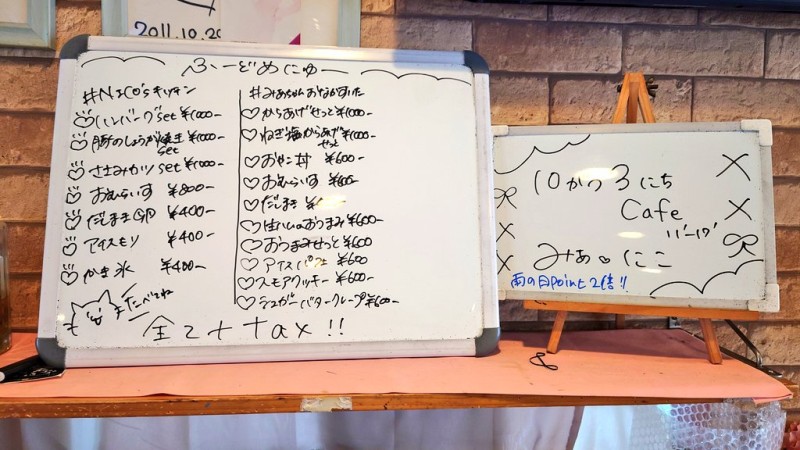 2011.10.20
ふーどめにゅー
#NicO'sキッチン
ハンバーグset ¥1000-
豚のしょうが焼き ¥1000-
set
ささみカツset ¥1000-
おむらいす ¥800-
だしまき卵 ¥400-
アイスモリ ¥400-
かき氷 ¥400-
たべてね
#みあちゃんおなかすいた
からあげせっと ¥1000-
ねぎ塩からあげ ¥1000-
せっと
おやこ丼 ¥600-
おむらいす ¥600-
だしまき
生ハムのおつまみ ¥600-
おつまみせっと ¥600
アイスパフェ ¥600
スモアクッキー ¥600-
シュガーバタークレープ ¥600-
全て+tax!!
10がつ3にち
Cafe
11'-17'
みあ。にこ
雨の日Point2倍!!